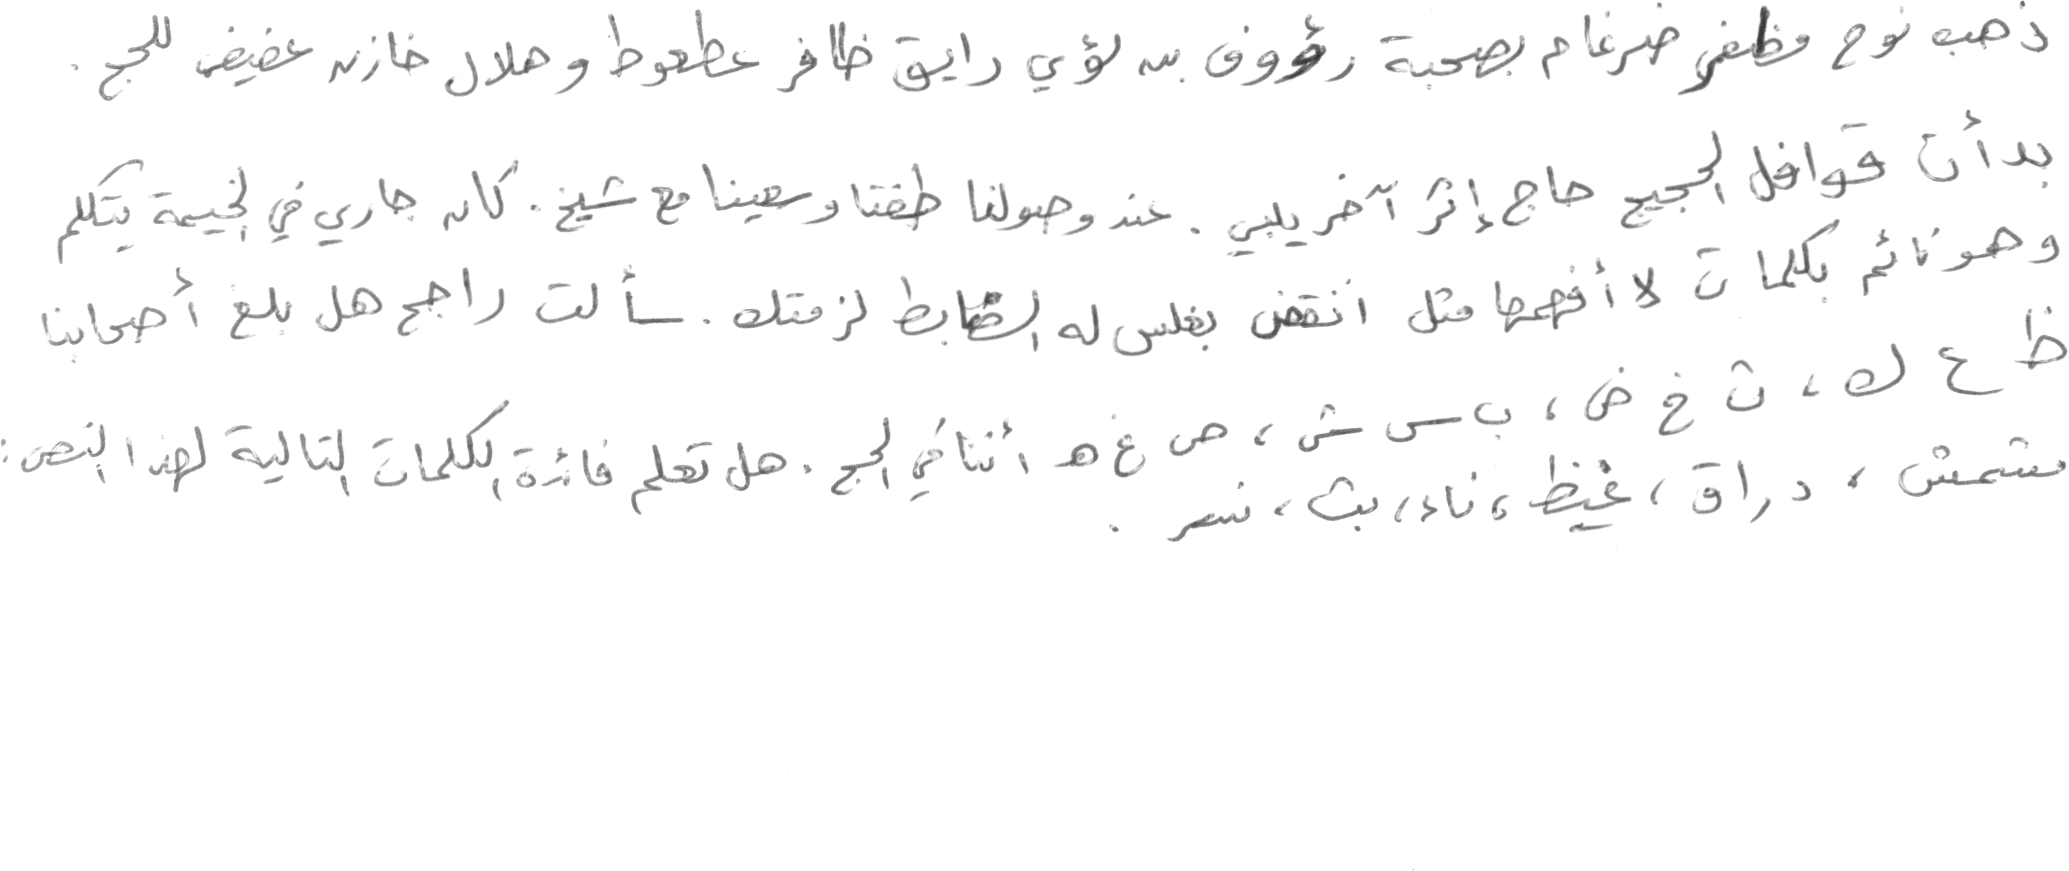 ذهب نوح مظفر ضرغام بصحبة رؤوف بن لؤي رايق ظافر عطعوط وهلال خازن عضيض للحج .
بدأت قوافل الحجيج حاج إثر آخر يلبي . عند وصولنا طفنا وسعينا مع شيخ . كان جاري في الخيمة يتكلم
وهو نائم بكلمات لا أفهمها مثل انقض بغلس له الضابط لزمتك . سألت راجح هل بلغ أصحابنا
ظ ع ك ، ث خ ض ، ب س ش ، ص غ هـ أثناء الحج . هل تعلم فائدة الكلمات التالية لهذا النص :
مشمش ، دراق ، غيظ ، ناء ، بث ، نسر .